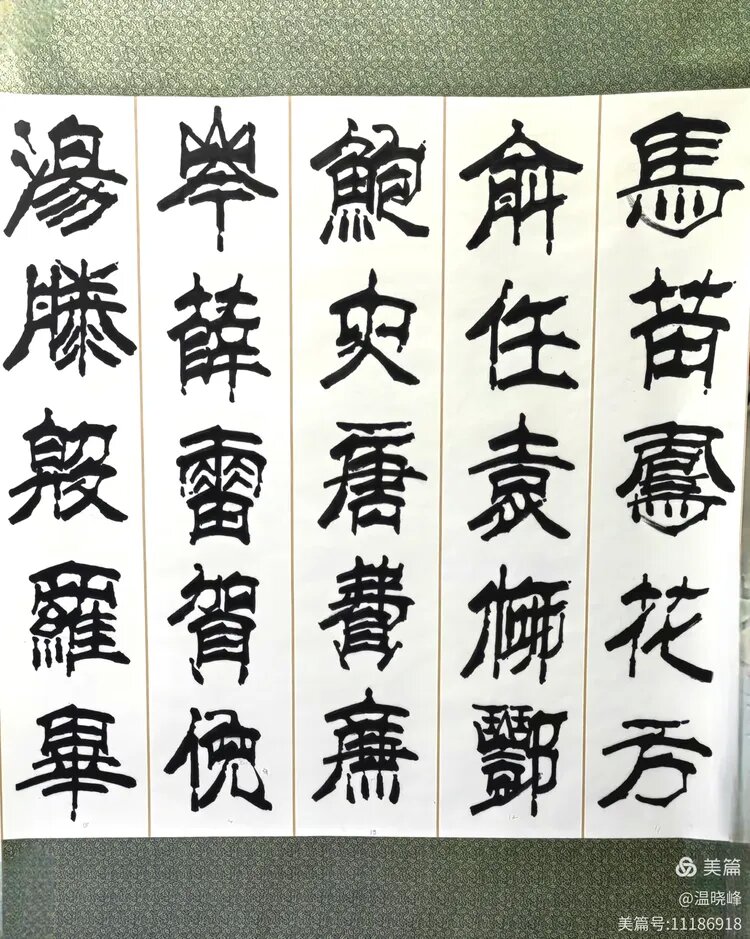 馬苗鳳花方
俞任袁柳酆
鮑史唐費廉
岑薛雷賀倪
湯滕殷羅畢
美篇
@温晓峰
美篇号:11186918